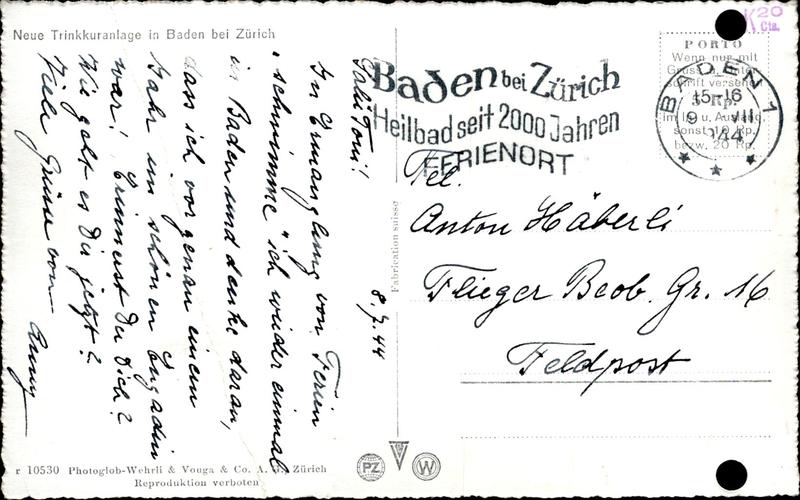 Neue Trinkkuranlage in Baden bei Zürich
8.7.44
Salü Toni!
In Ermanglung von Ferien
"schwimme" ich wieder einmal
in Baden und denke daran,
dass ich vor genau einem
Jahr im schönen Engadin
war! Erinnerst Du Dich?
Wie geht es Dir jetzt?
Viele Grüsse von
r 10530 Photoglob-Wehrli & Vouga & Co. A. Zürich
Reproduktion verboten
Fabrication suisse
PZ
W
Baden bei Zürich
Heilbad seit 2000 Jahren
FERIENORT
K 20
Cts.
PORTO
Wenn nur mit
schrift versehen
5 Rp.
im In- u. Ausland,
sonst 10 Rp.
bezw. 20 Rp.
BADEN 1
15-16
9 VII
944
Anton Häberli
Flieger Beob. Gr. 16
Feldpost